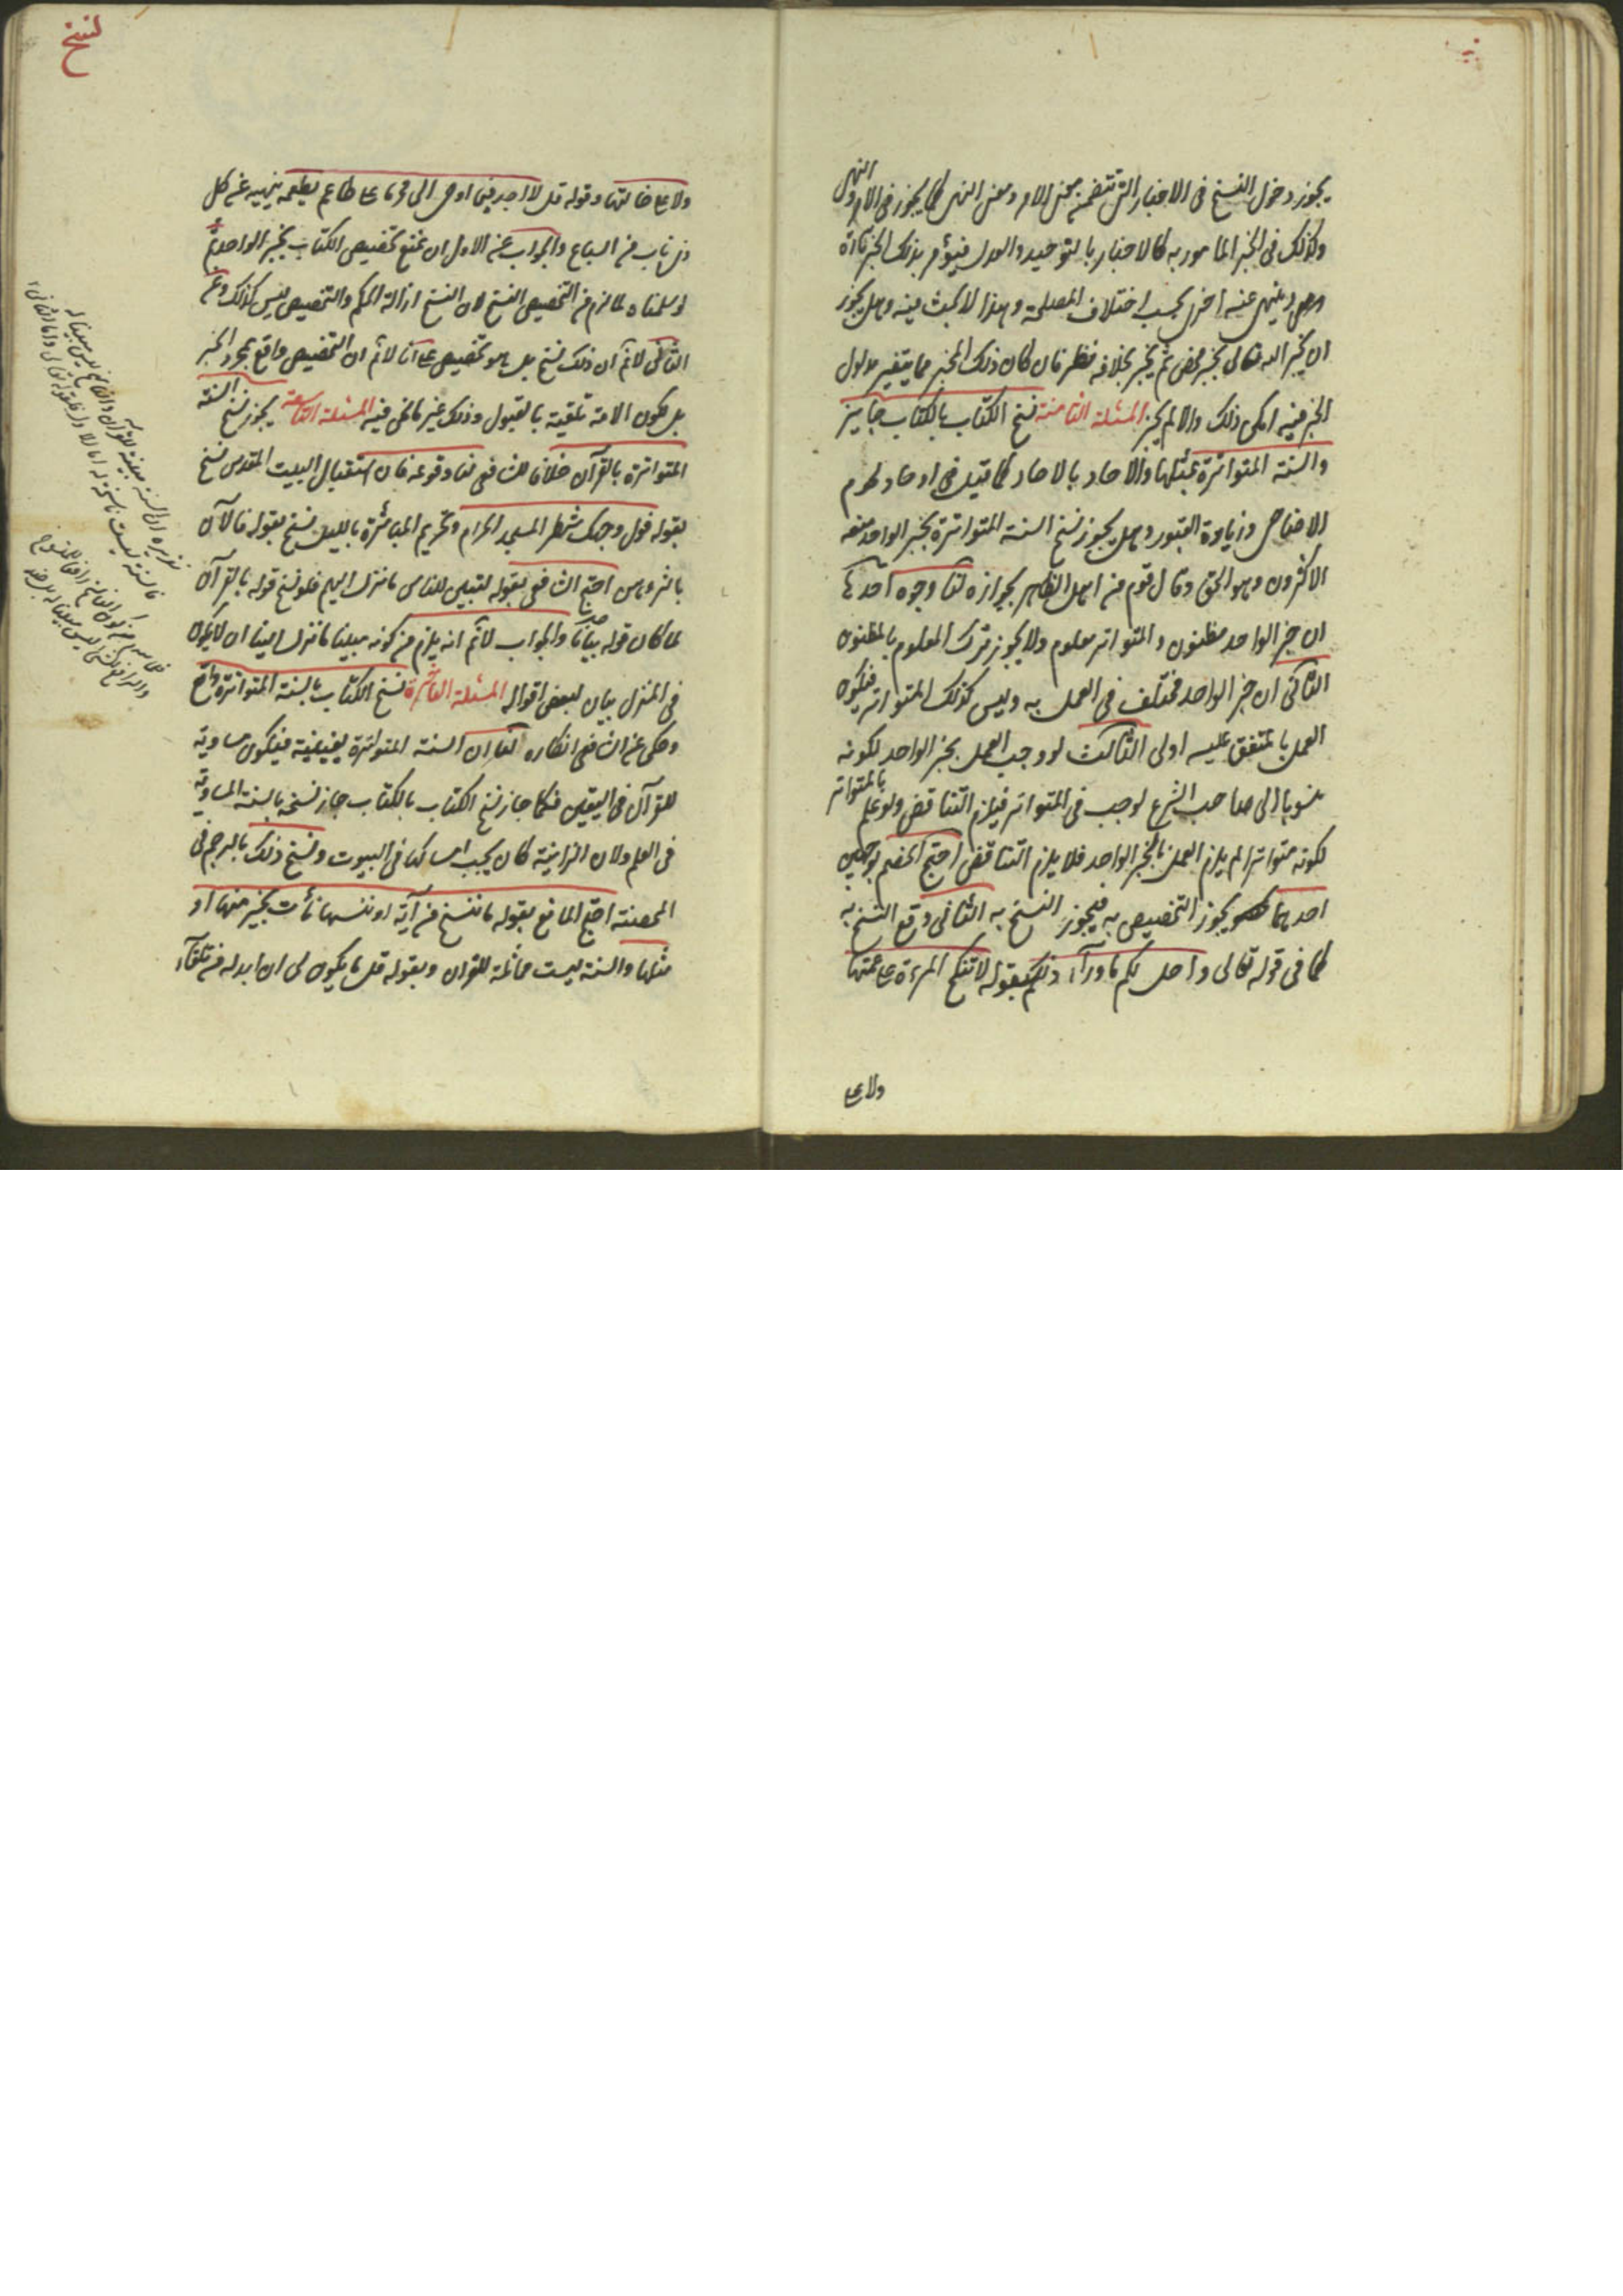 يجوز دخول النسخ فى الاخبار التى تتضمن معنى الامر ومعنى النهى كما يجوز فى الامر والنهى
وكذلك فى الخبر المأمور به كالاخبار بالتوحيد والعدل فيؤمر بذلك الخبر تارة
وينهى عنه اخرى بحسب اختلاف المصلحة وهذا لا بحث فيه وهل يجوز
ان يخبر الله تعالى بخبر محض ثم يخبر بخلافه نظر فان كان ذلك الخبر مما يتغير مدلول
الخبر فيه امكن ذلك والا لم يجز المسئلة الثامنة نسخ الكتاب بالكتاب جايز
والسنة المتواترة بمثلها والآحاد بالآحاد كما قيل فى ادخار لحوم
الاضاحى وزيارة القبور وهل يجوز نسخ السنة المتواترة بخبر الواحد منعه
الاكثرون وهو الحق وقال قوم من اهل الظاهر بجوازه لنا وجوه احدها
ان خبر الواحد مظنون والمتواتر معلوم ولا يجوز ترك المعلوم بالمظنون
الثانى ان خبر الواحد مختلف فى العمل به وليس كذلك المتواتر فيكون
العمل بالمتفق عليه اولى الثالث لو وجب العمل بخبر الواحد لكونه
منسوبا الى صاحب الشرع لوجب فى المتواتر فيلزم التناقض ولو علم بالمتواتر
لكونه متواترا لم يلزم العمل بالخبر الواحد فلا يلزم التناقض احتج الخصم بوجهين
احدهما يجوز التخصيص به فيجوز النسخ به الثانى وقع النسخ به
كما فى قوله تعالى واحل لكم ما ورآء ذلكم بقوله لا تنكح المرءة على عمتها
ولا على
نسخ
ولا على خالتها وقوله قل لا اجد فيما اوحى الى محرما على طاعم يطعمه بنهيه عن كل
ذى ناب من السباع والجواب عن الاول ان نمنع تخصيص الكتاب بخبر الواحد
لو سلمناه لما لزم من التخصيص النسخ لان النسخ ازالة الحكم والتخصيص ليس كذلك وعن
الثانى لا نم ان ذلك نسخ بل هو تخصيص على انا لا نم ان التخصيص واقع بمجرد الخبر
بل بكون الامة تلقيته بالقبول وذلك غير ما نحن فيه المسئلة التاسعة يجوز نسخ السنة
المتواترة بالقرآن خلافا للشافعى لنا وقوعه فان استقبال البيت المقدس نسخ
بقوله فول وجهك شطر المسجد الحرام وتحريم المباشرة بالليل نسخ بقوله فالآن
باشروهن احتج الشافعى بقوله لتبين للناس ما نزل اليهم فلو نسخ قوله بالقرآن
لما كان قوله بيانا والجواب لا نم انه يلزم من كونه مبينا لما نزل الينا ان لا يكون
فى المنزل بيان لبعض اقواله المسئلة العاشرة نسخ الكتاب بالسنة المتواترة واقع
وحكى عن الشافعى انكاره لنا ان السنة المتواترة يقينية فيكون مساوية
للقرآن فى اليقين فكما جاز نسخ الكتاب بالكتاب جاز نسخه بالسنة المساوية
فى العلم ولان الزانية كان يجب امساكها فى البيوت ونسخ ذلك بالرجم فى
المحصنة احتج المانع بقوله ما ننسخ من آية او ننسها نأت بخير منها او
مثلها والسنة ليست مماثلة للقرآن وبقوله قل ما يكون لى ان ابدله من تلقآء
تقريره ان السنة مبينة للقرآن والناسخ ليس مبينا له
فالسنة ليست ناسخة له اما الاول فلقوله تعالى واما الثانى